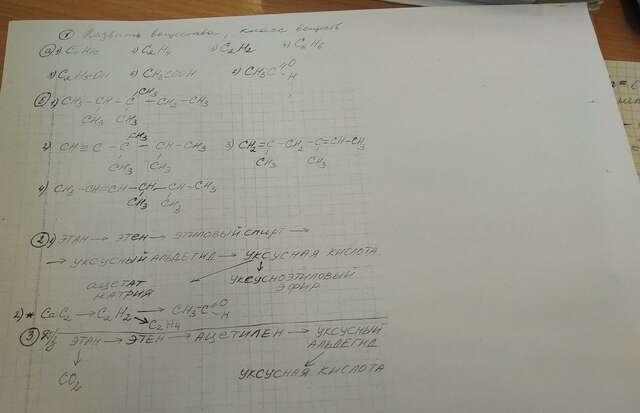 ① Назвать вещества, класс веществ
а) 1) C₅H₁₂ 2) C₂H₄ 3) C₂H₂ 4) C₆H₆
1) C₂H₅-OH 2) CH₃COOH 3) CH₃C O H
CH₃
б) 1) CH₃-CH-C-CH₂-CH₃
CH₃ CH₃
CH₃
2) CH≡C-C-CH-CH₃ 3) CH₂=C-CH₂-C=CH-CH₃
CH₃ CH₃ CH₃ CH₃
4) CH₃-CH=CH-CH-CH-CH₃
CH₃ CH₃
② 1) ЭТАН → ЭТЕН → ЭТИЛОВЫЙ СПИРТ →
→ УКСУСНЫЙ АЛЬДЕГИД → УКСУСНАЯ КИСЛОТА.
АЦЕТАТ УКСУСНОЭТИЛОВЫЙ
НАТРИЯ ЭФИР
2) * CaC₂ → C₂H₂ → CH₃-C O H
C₂H₄
③ ЭТАН → ЭТЕН → АЦЕТИЛЕН → УКСУСНЫЙ
АЛЬДЕГИД
CO₂ УКСУСНАЯ КИСЛОТА